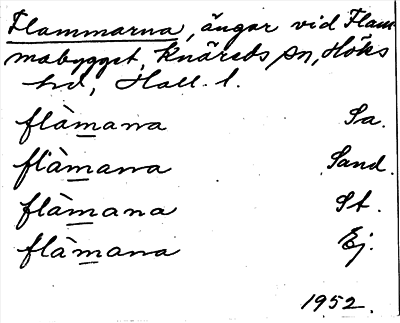 Flammarna, ängar vid Flam-
mabygget, Knäreds sn, Höks
hd, Hall. l.
flàmana Sa.
flàmana Sand.
flàmana St.
flàmana Ej.
1952.